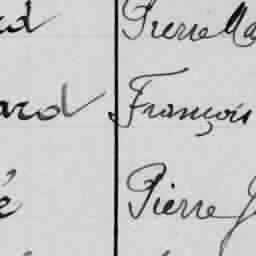 rd Pierre Ma
ard François
é Pierre J